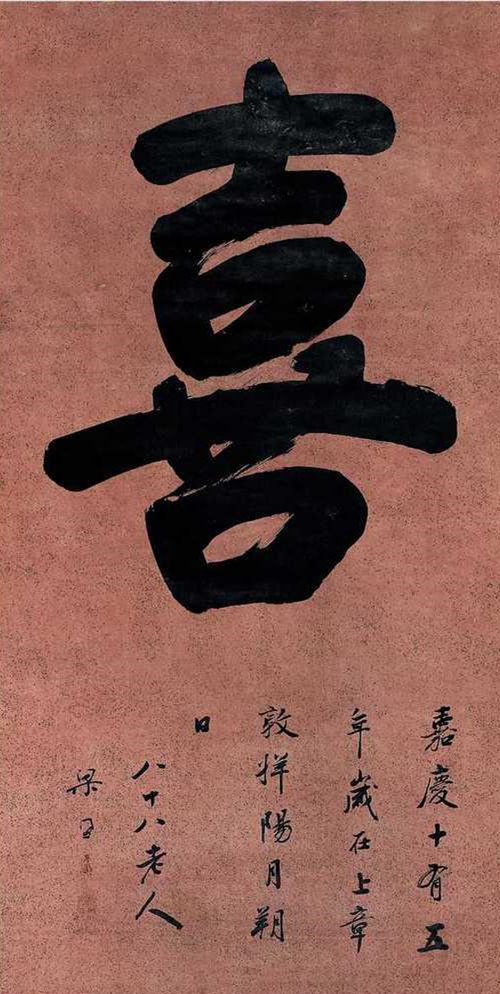 喜
嘉慶十有五
年歲在上章
敦牂陽月朔
日
八十八老人
梁